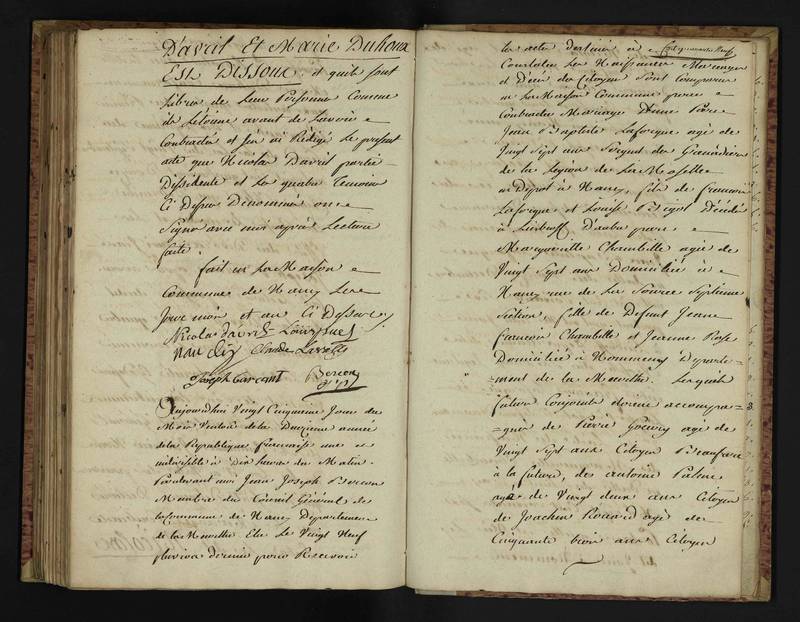 D'avril Et Marie Duhoux
Est Dissout et quils sont
Libres de Leur Personne Comme
ils Letoune avant de Lavoir
Contractés et Jen ai Rédigé Le present
acte que Nicolas Davril partie
Dissidente et Les quatre Temoins
Ci Dessus Dénommés on
Signé avec moi après Lecture
faite.
fait en La Maison
Commune de Nancy Les
Jour mois et an Ci Dessus
Nicolas Louis
Claude
Joseph
Aujourdhui Vingt Cinquieme Jour du
Mois Ventose de la Deuxieme année
de la Republique francaise une et
indivisible à Dix heures du Matin
Pardevant moi Jean Joseph
Membre du Conseil Général de
la Commune de Nancy Departement
de la Meurthe Elu Le Vingt Neuf
pluviose dernier pour Recevoir
les actes destinés à
Constater Les Naissances Mariages
et Décès des Citoyens Sont Comparus
en La Maison Commune pour
Contracter Mariage D'une Part
Jean Baptiste Laforgue agé de
Vingt Sept ans Sergent des Grenadiers
de la Legion de La Moselle
en Depot à Nancy, fils de francois
Laforgue et Louise Bigot Décédé
à
Marguerite Chambille agée de
Vingt Sept ans Domiciliée à
Nancy rue de La Source Septieme
Section, fille de Defunt Jean
francois Chambille et Jeanne Rose
Domiciliée à Nommeny Departe=
=ment de la Meurthe. Lesquels
futurs Conjoints étoient accompa=
=gnés de Pierre agé de
Vingt Sept ans Citoyen Beaufrere
à la future, de antoine
agé de Vingt deux ans Citoyen
de Joachin agé de
Cinquante trois ans Citoyen